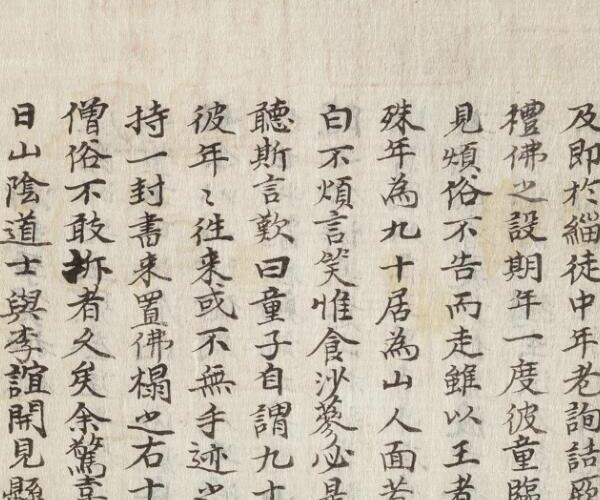 及即於緇徒中年老詢詰
禮佛之設期年一度彼童臨
見煩俗不告而走雖以王者
殊年為九十居為山人面若
白不煩言笑惟食沙蔘必是
聽斯言歎曰童子自謂九十
彼年〻往来或不無手迹之
持一封書来置佛榻之右十
僧俗不敢拆者久矣余驚喜
日山陰道士與李誼開見懸